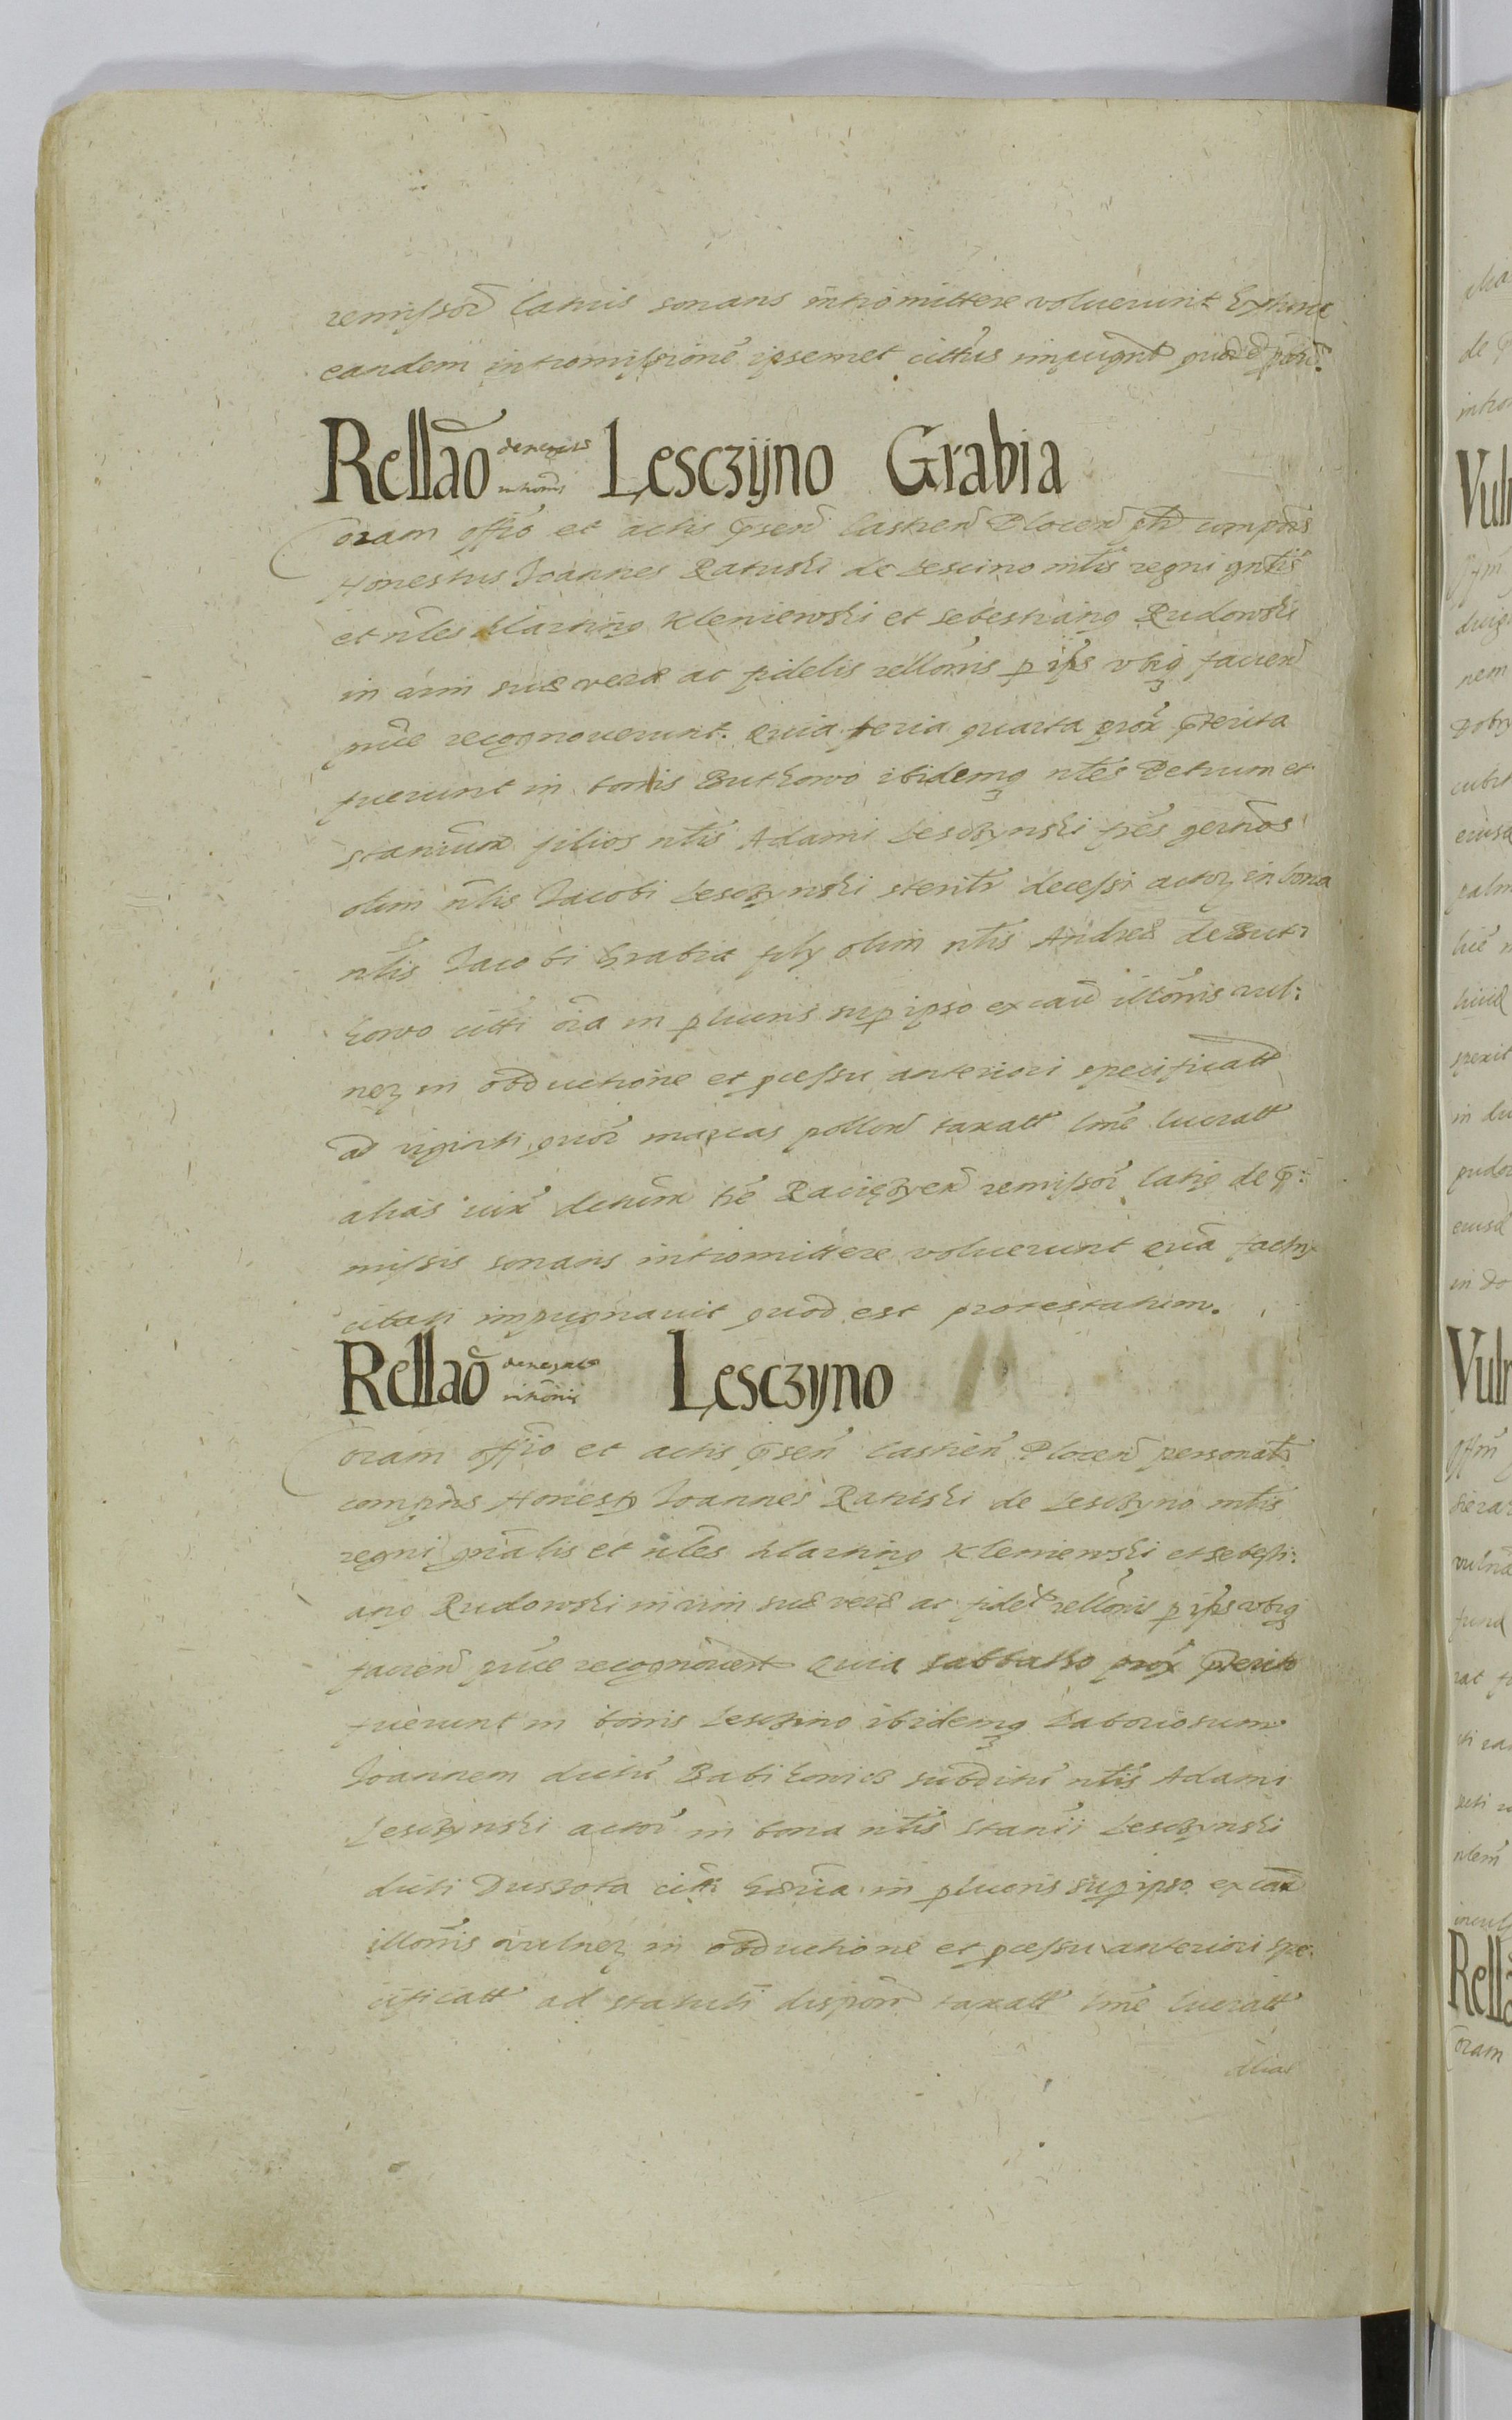 remissor latius sonans intromittere voluerunt Extunc
eandem intromissionē ipsemet cittus impugnt quod ē
Rellao denegatae introis Lesczyno Grabia
Coram offo et actis psen Castren Plocen ptr compns
Honestus Joannes Ratuski de Lescino mtis regni gntis
et nles Martinq Kleniewski et Sebestianq Rudowski
in vim suae verae ac fidelis rellonis p ips vbiq facien
pnce recognouerunt. Quia feria quarta prox pterita
fuerunt in bonis Buthowo ibidemq ntes Petrum et
Stanium filios ntis Adami Lesczynski fres germos
olim nlis Jacobi Lesczynski sterilr decessi actor in bona
ntis Jacobi Grabia fily olim ntis Andreae de But:
kowo citti oia in pluris sup ipso ex cau illonis vul:
ner in obductione et pcessu anteriori specificatt
ad viginti quor marcas pollon taxatt lme lucratt
alias iux decum tre Raciązyen remissor latiq de p:
missis sonans intromittere voluerunt quā
citati impugnauit quod est protestatum.
Rellao denegatae intronis Lesczyno
Coram offio et actis psen Castren Plocen personatr
compns Honestq Joannes Ratuski de Lesczyno mtis
regni gnalis et nles Martinq Kleniewski et Sebesti:
anq Rudowski in vim suae verae ac fidel rellonis p ips vbiq
facien pnce recognouert Quia sabbatho prox pterito
fuerunt in bonis Lesczino ibidemq Laboriosum
Joannem dictū Babikowicz subditū ntis Adami
Lesczynski actor in bona ntis Stanii Lesczynski
dicti Duszota citti in pluris sup ipso ex cau
illonis vulner in obductione et pcessu anteriori spe:
cificatt ad statuti dispon taxatt lme lucratt
alias